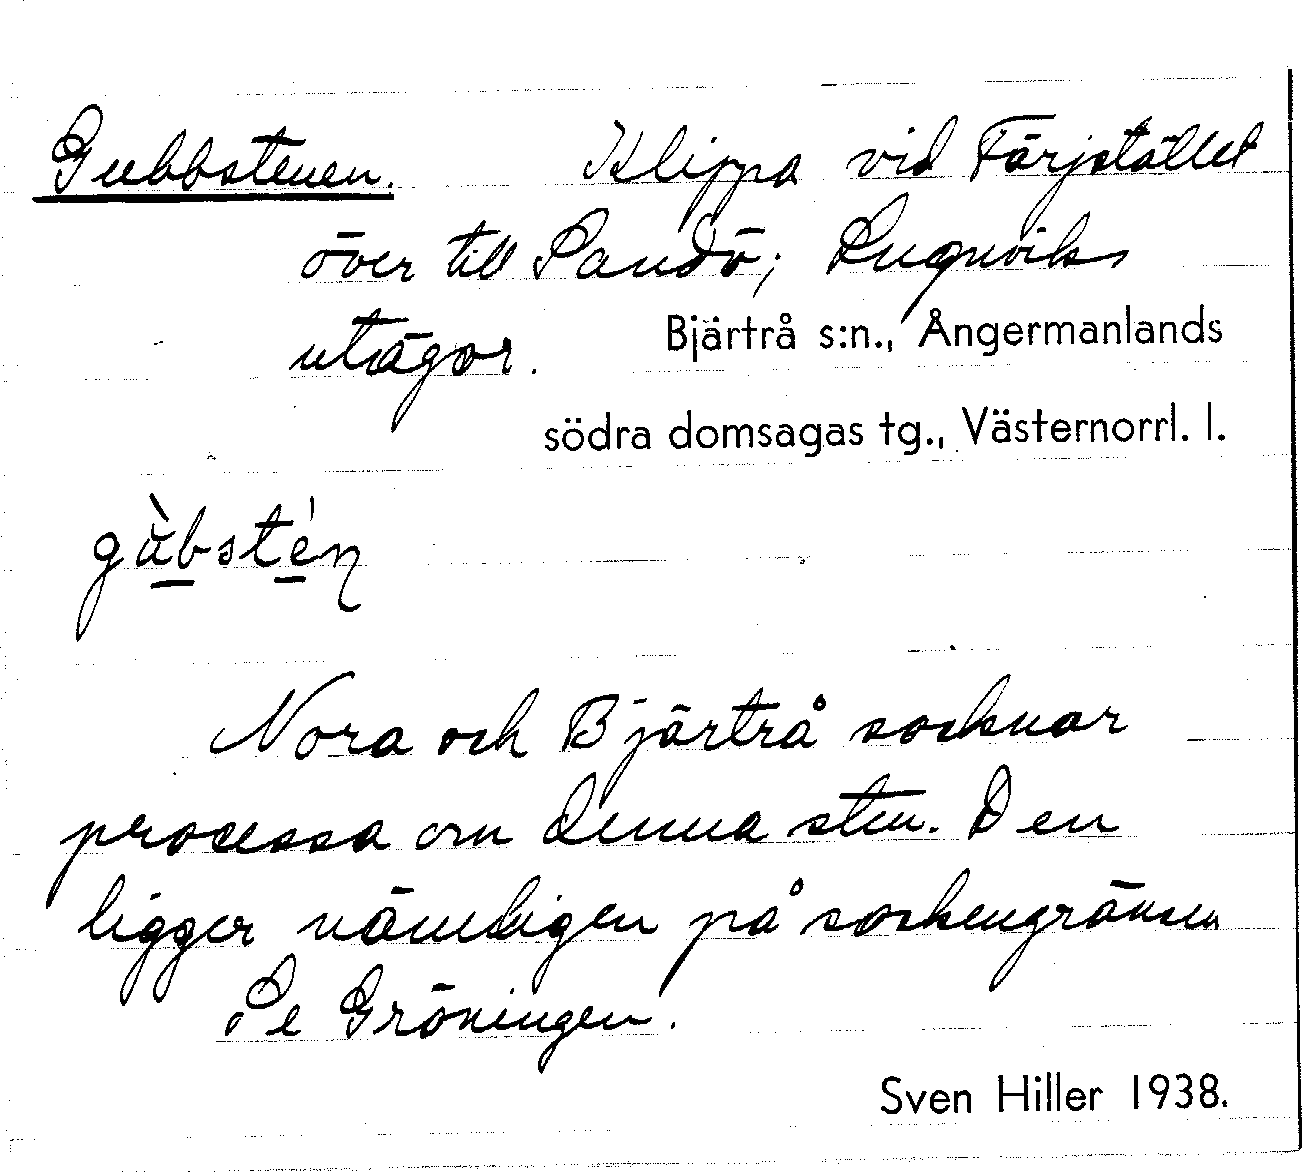 Gubbstenen. Klippa vid Färjstället
över till Sandö; Lugnviks
utägor. Bjärtrå s:n., Ångermanlands
södra domsagas tg., Västernorrl. l.
gùbstén
Nora och Bjärtrå socknar
processa om denna sten. Den
ligger nämligen på sockengränsen
Se Gröningen.
Sven Hiller 1938.